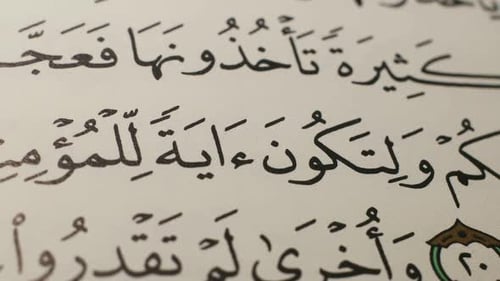 كَثِيرَةً تَأْخُذُونَهَا فَعَجَّـ
ـكُمْ وَلِتَكُونَ ءَايَةً لِّلْمُؤْمِنِـ
٢٠ وَأُخْرَىٰ لَمْ تَقْدِرُوا۟